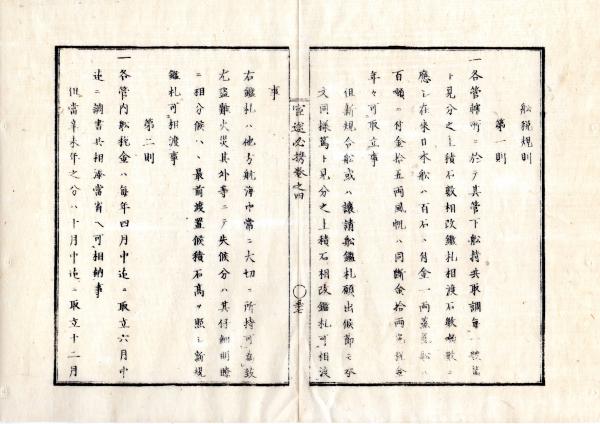 船税規則
第一則
一各管轄所ニ於テ其管下船持共取調毎一艘篤
ト見分之上積石数相改鑑札相渡石数噸数ニ
應シ在来日本船ハ百石ニ付金一両蒸気船ハ
百噸ニ付金拾五両風帆ハ同断金拾両宛税金
年々可取立事
但新規令船或ハ譲請船鑑札願出候節モ
文同様篤ト見分之上積石相改鑑札可相渡
官途必携巻之四
事
右鑑札ハ他方航海中常ニ大切ニ所持可為致
尤盗難火災其外等ニテ失候分ハ其仔細明瞭
ニ相分候ハヽ最前渡置候積石高ニ照シ新規
鑑札可相渡事
第二則
一各管内船税金ハ毎年四月中迄ニ取立六月中
迄ニ調書共相添當省ヘ可相納事
但當辛未年之分ハ十月中迄ニ取立十二月